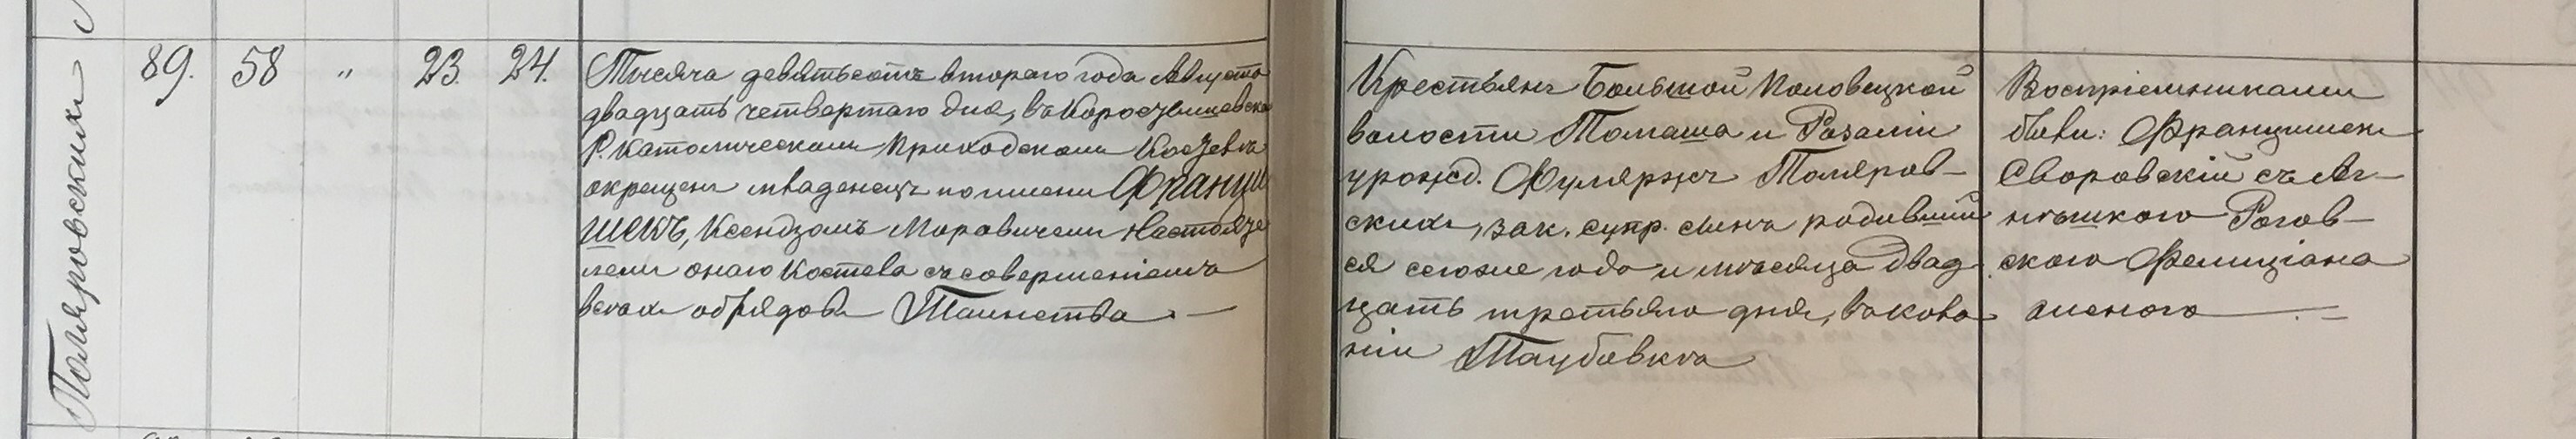 Поляровский
89. 58 " 23. 24.
Тысяча девятьсотъ втораго года Августа
двадцать четвертаго дня, въ Коростышевско
Р. Католическомъ Приходскомъ Костелѣ
окрещенъ младенецъ по имени Франци
шекъ, Ксендзомъ Моравичемъ Настояте
лемъ онаго Костела съ совершеніемъ
всѣхъ обрядовъ Таинства. —
Крестьянъ Большой Половецкой
волости Томаша и Розаліи
урожд. Фуляржъ Поляров-
скихъ, зак. супр. сынъ родивший
ся сегоже года и мѣсяца двад-
цать третьяго дня, въ коло
ніи Таубовкѣ
Воспріемниками
были: Францишекъ
Своровскій съ Аг-
нѣшкою Рогов-
скою Фелиціана
женою —